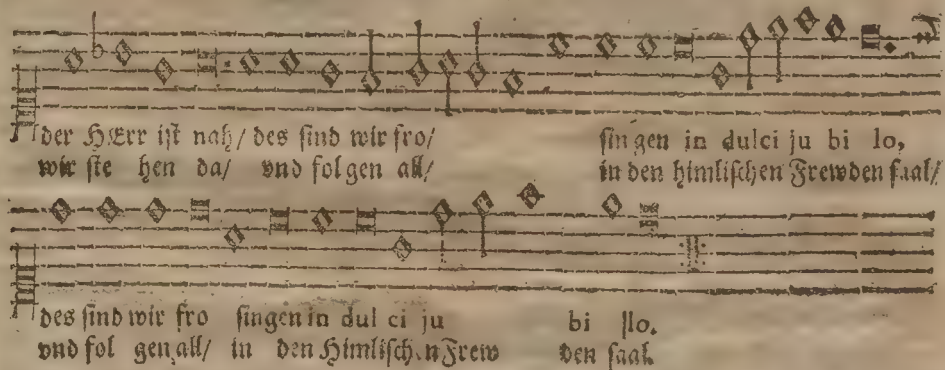 der HErr ist nah/ des sind wir fro/ singen in dulci ju bi lo,
wir ste hen da/ vnd folgen all/ in den himlischen Frewden saal/
des sind wir fro singen in dul ci ju bi lo.
vnd fol gen all/ in den Himlischen Frew den saal.